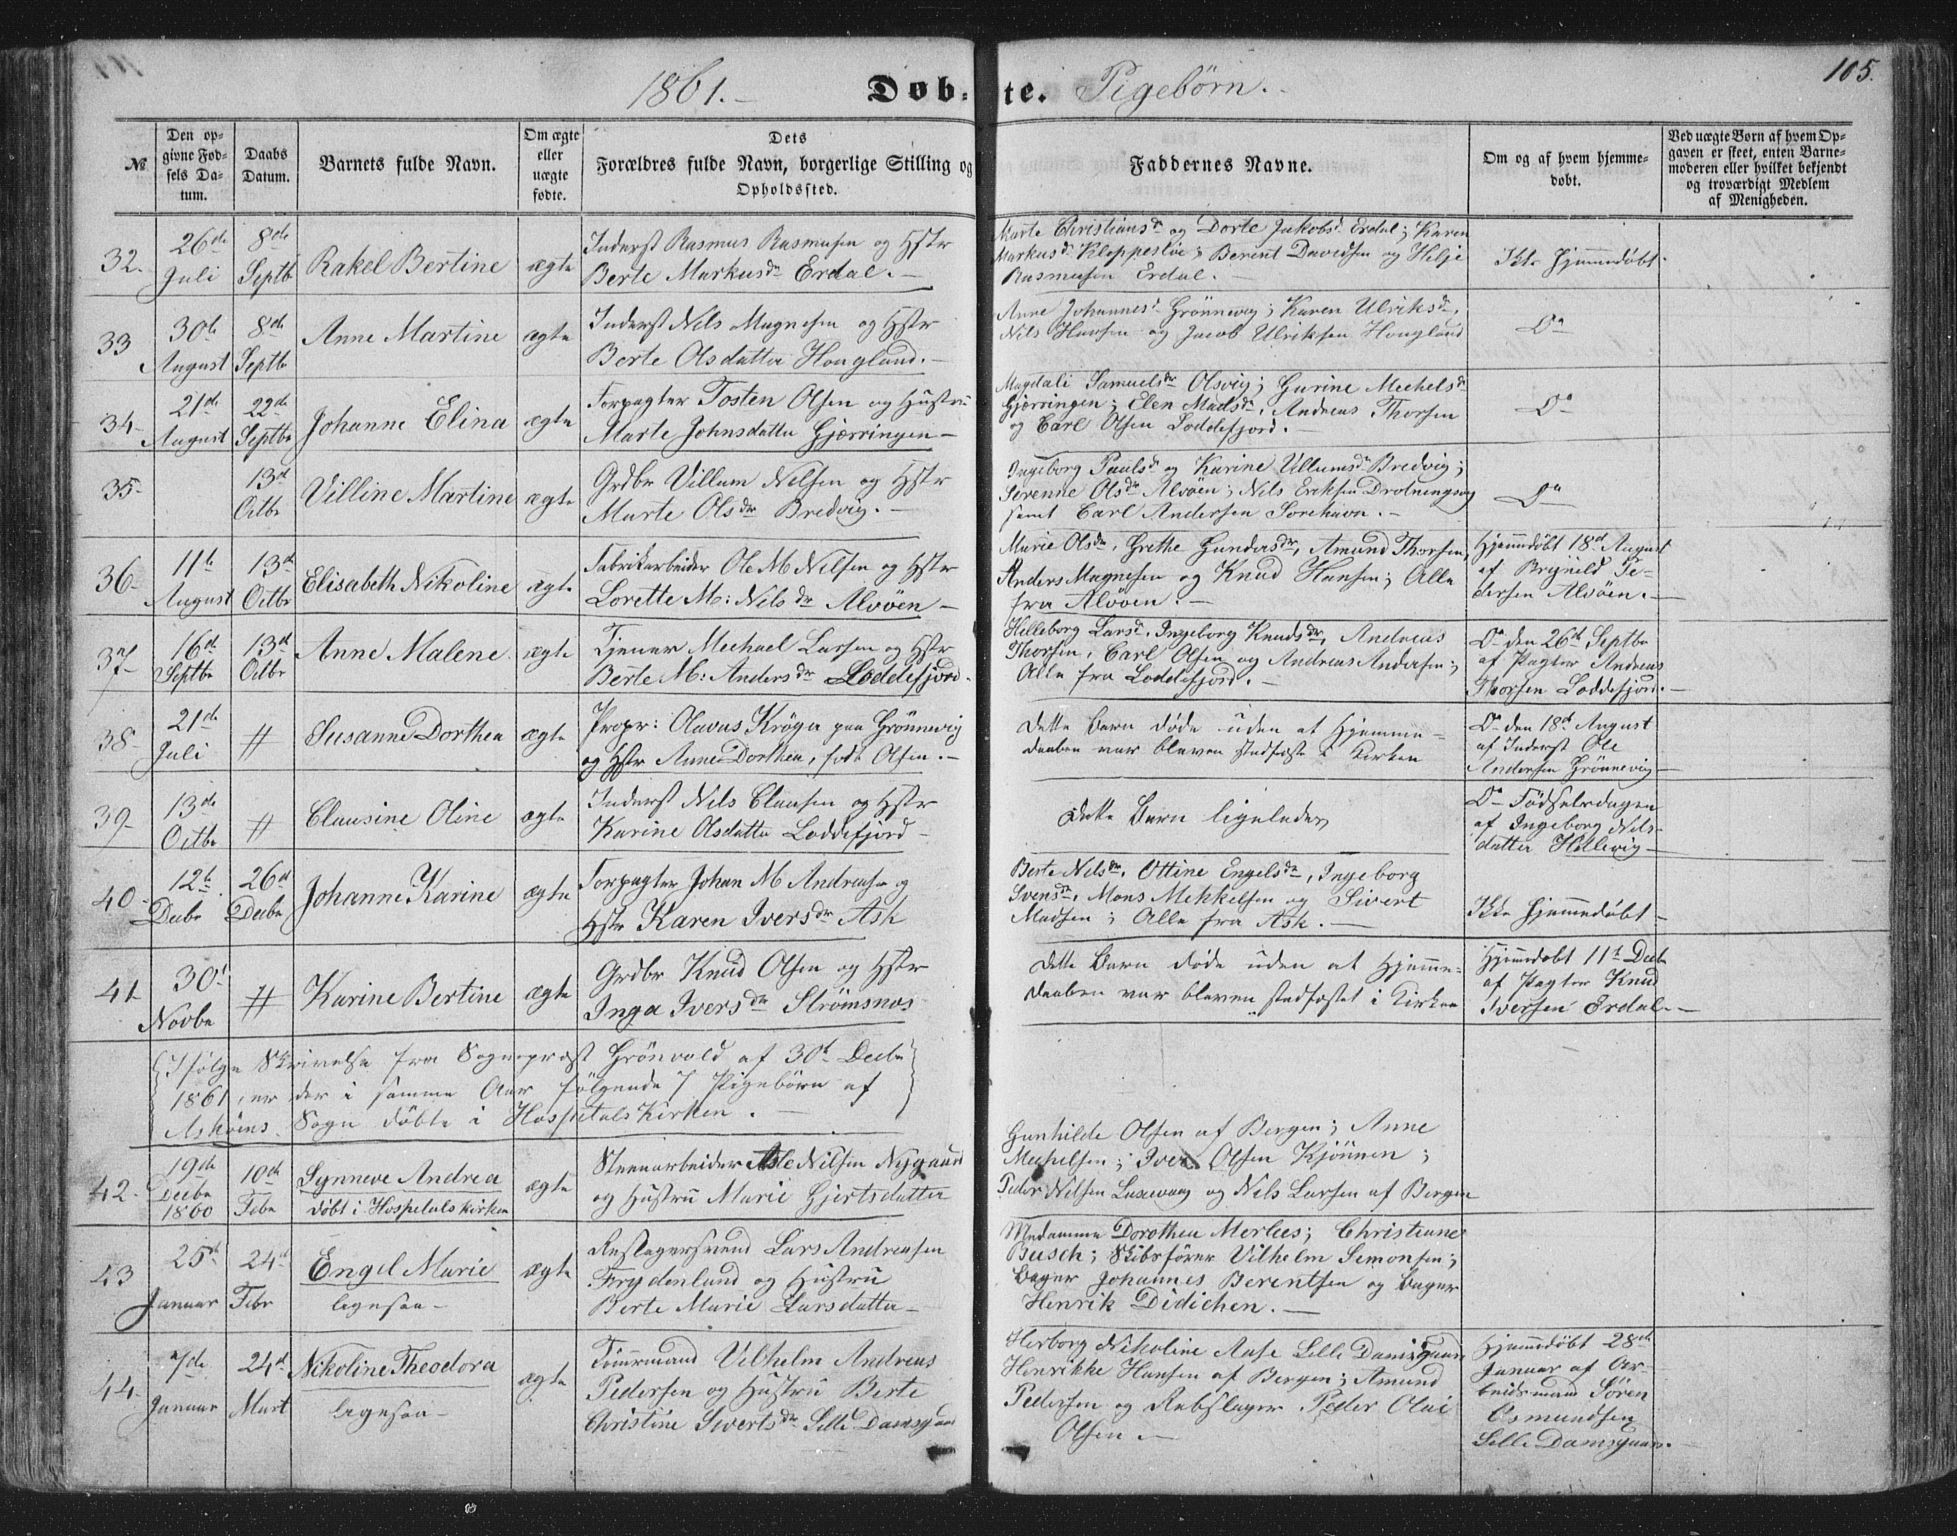 1861.- Døb= te. Pigebørn. 105.
№
Den op-
givne Fød-
sels Da-
tum.
Daabs
Datum.
Barnets fulde Navn.
Om ægte
eller
uægte
fødte.
Dets
Forældres fulde Navn, borgerlige Stilling og
Opholdssted.
Faddernes Navne.
Om og af hvem hjemme-
døbt.
Ved uægte Børn af hvem Op-
gaven er skeet, enten Barne-
moderen eller hvilket bekjendt
og troværdigt Medlem
af Menigheden.
32.
26de
Juli
8de
Septb
Rakel Bertine
ægte
Inderst Rasmus Rasmusen og Hstr
Berte Markusdr Erdal.-
Marte Christiansd og Dorte Jakobsd Erdal; Karen
Markusd Kloppesløe; Berent Davidsen og Helje
Rasmusen Erdal.-
Ikke Hjemmedøbt.
33
30te
August
8de
Septbr
Anne Martine
ægte
Inderst Nils Magnesen og Hstr
Berte Olsdatter Hougland.-
Anne Johannesd Grønnevig; Karen Ulriksdr,
Nils Hansen og Jacob Ulriksen Hougland
Do
34-
21de
August
22de
Septbr
Johanne Elina
ægte
Forpagter Tosten Olsen og Hustru
Marte Johnsdatter Gjærringen-
Magdali Samuelsdr Olsvig; Gurine Mechelsdr
Gjærringen; Elen Madsdr, Andreas Thorsen
og Carl Olsen Loddefjord.-
Do
35-
13de
Octbr
Villine Martine
ægte
Grdbr Villum Nilsen og Hstr
Marte Olsdr Bredvig.-
Ingeborg Paulsdr og Karine Villumsdr Bredvig;
Serenne Olsdr Alvøen; Nils Eriksen Drotningsvg
samt Carl Andersen Sorehavn.-
Do
36-
11te
August
13de
Octbr
Elisabeth Nikoline
ægte
Fabrikarbeider Ole M Nilsen og Hstr
Lorette M: Nilsdr Alvøen-
Marie Olsdr, Grethe Gundersdr, Amund Thorsen,
Anders Magnesen og Knud Hansen; Alle
fra Alvøen.-
Hjemmedøbt 18de August
af Brynild Pe-
dersen Alvøen.-
37-
16de
Septbr
13de
Octbr
Anne Malene
ægte
Tjener Mechael Larsen og Hstr
Berte M: Andersdr Loddefjord.
Helleborg Larsd, Ingeborg Knudsdr, Andreas
Thorsen, Carl Olsen og Andreas Andersen;
Alle fra Loddefjord.-
Do den 26de Septbr
af Pagter Andreas
Thorsen Loddefjord.-
38-
21de
Juli
#
Susanne Dorthea
ægte
Propr: Olavus Krøger paa Grønnevig
og Hstr Anne Dorthea, født Olsen.-
Dette Barn døde uden at Hjemme-
daaben var bleven stadfæstet i Kirken
Do den 18de August
af Inderst Ole
Andersen Grønnevig-
39-
13de
Octbr
#
Clausine Oline
ægte
Inderst Nils Clausen og Hstr
Karine Olsdatter Loddefjord-
Dette Barn ligeledes
Do Fødselsdagen
af Ingeborg Nils-
datter Hellevig-
40-
12te
Decbr
26de
Decbr
Johanne Karine
ægte
Forpagter Johan M Andreasen og
Hstr Karen Iversdr Ask
Berte Nilsdr, Ottine Engelsdr, Ingeborg
Svensdr, Mons Mekkelsen og Sivert
Madsen; Alle fra Ask.-
Ikke Hjemmedøbt-
41
30t
Novbr
#
Karine Bertine
ægte
Grdbr Knud Olsen og Hstr
Inga Iversdr Strømsnes
Dette Barn døde uden at Hjemme-
daaben var bleven stadfæstet i Kirken
Hjemmedøbt 11te Decbr
af Pagter Knud
Iversen Erdal.-
Ifølge Skrivelse fra Sognepræst Grönvold af 30te Decbr
1861, er der i samme Aar følgende 7 Pigebørn af
Askøens Sogn døbte i Hospetalskirken.-
42.
19de
Decbr
1860
10de
Febr
Synneve Andrea
døbt i Hospetalskirken
ægte
Steenarbeider Asle Nilsen Nygaard
og Hustru Marie Gjertsdatter
Gunhilde Olsen af Bergen; Anne
Mechelsen; Iver Olsen Kjønnen;
Peder Nilsen Laxevaag og Nils Larsen af Bergen
43
25de
Januar
24de
Febr
Engel Marie
ligesaa-
ægte
Reslagersvend Lars Andreasen
Frydenlund og Hustru
Berte Marie Larsdatter-
Medamme Dorothea Merlees; Christiane
Busch; Skibsfører Vilhelm Semonsen;
Bager Johannes Berentsen og Bager
Henrik Didichen.-
44-
7de
Januar
24de
Mart
Nikoline Theodora
ligesaa-
ægte
Tømrmand Vilhelm Andreas
Pedersen og Hustru Berte
Christine Sivertsdr Lille Damsgaard
Herborg Nikoline Aase Lille Damsgaard
Henrikke Hansen af Bergen; Amund
Pedersen og Rebslager Peder Olai
Olsen.-
Hjemmedøbt 28de
Januar af Ar-
beidsmand Sören
Osmundsen
Lille Damsgaard.